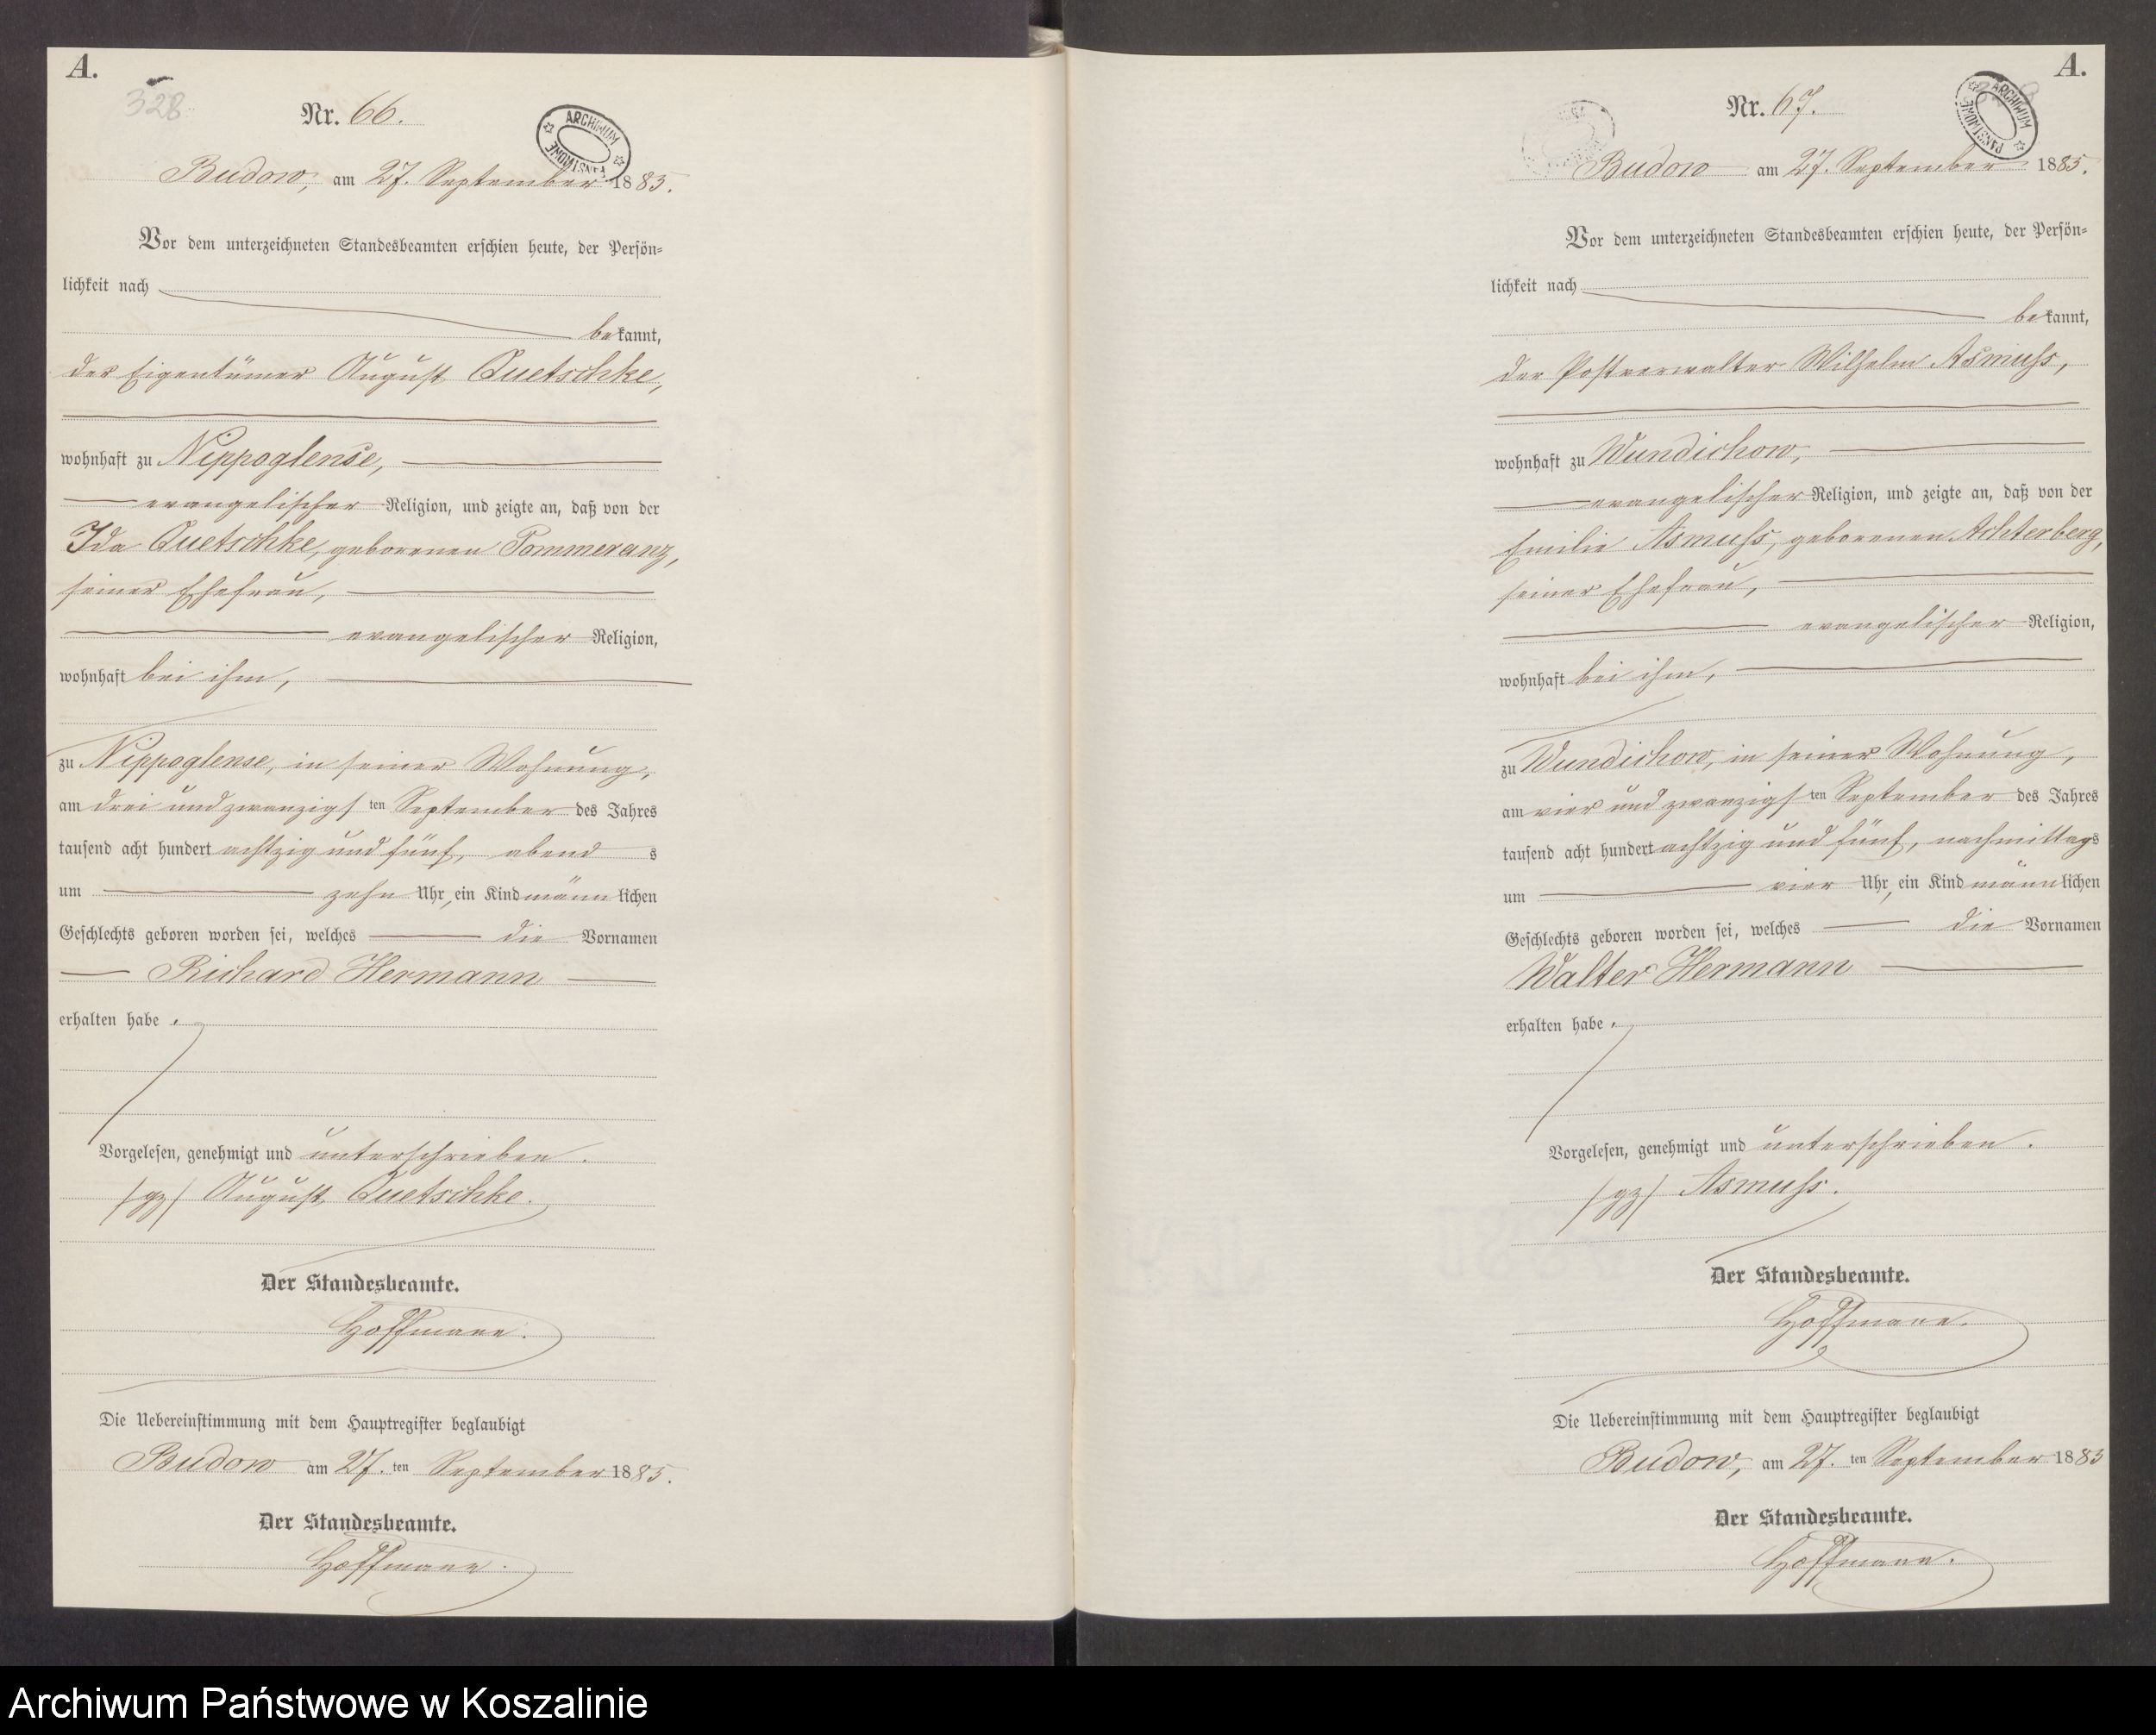 A.
328
Nr. 66.
ARCHIWUM PAŃSTWOWE
Budow, am 27. September 1885.
Vor dem unterzeichneten Standesbeamten erschien heute, der Persön=
lichkeit nach
bekannt,
der Eigentümer August Quetschke,
wohnhaft zu Nippoglense,
evangelischer Religion, und zeigte an, daß von der
Ida Quetschke, geborenen Pommeranz,
seiner Ehefrau,
evangelischer Religion,
wohnhaft bei ihm,
zu Nippoglense, in seiner Wohnung,
am drei und zwanzigsten September des Jahres
tausend acht hundert achtzig und fünf, abends
um zehn Uhr, ein Kind männlichen
Geschlechts geboren worden sei, welches die Vornamen
Richard Hermann
erhalten habe.
Vorgelesen, genehmigt und unterschrieben.
/gz/ August Quetschke.
Der Standesbeamte.
Hoffmann.
Die Uebereinstimmung mit dem Hauptregister beglaubigt
Budow am 27. ten September 1885.
Der Standesbeamte.
Hoffmann.
A.
Nr. 67.
ARCHIWUM PAŃSTWOWE
Budow am 27. September 1885.
Vor dem unterzeichneten Standesbeamten erschien heute, der Persön=
lichkeit nach
bekannt,
der Postverwalter Wilhelm Asmuss,
wohnhaft zu Wundichow,
evangelischer Religion, und zeigte an, daß von der
Emilie Asmuss, geborenen Achterberg,
seiner Ehefrau,
evangelischer Religion,
wohnhaft bei ihm,
zu Wundichow, in seiner Wohnung,
am vier und zwanzigsten September des Jahres
tausend acht hundert achtzig und fünf, nachmittags
um vier Uhr, ein Kind männlichen
Geschlechts geboren worden sei, welches die Vornamen
Walter Hermann
erhalten habe.
Vorgelesen, genehmigt und unterschrieben.
/gz/ Asmuss.
Der Standesbeamte.
Hoffmann.
Die Uebereinstimmung mit dem Hauptregister beglaubigt
Budow, am 27. ten September 1885
Der Standesbeamte.
Hoffmann.
Archiwum Państwowe w Koszalinie